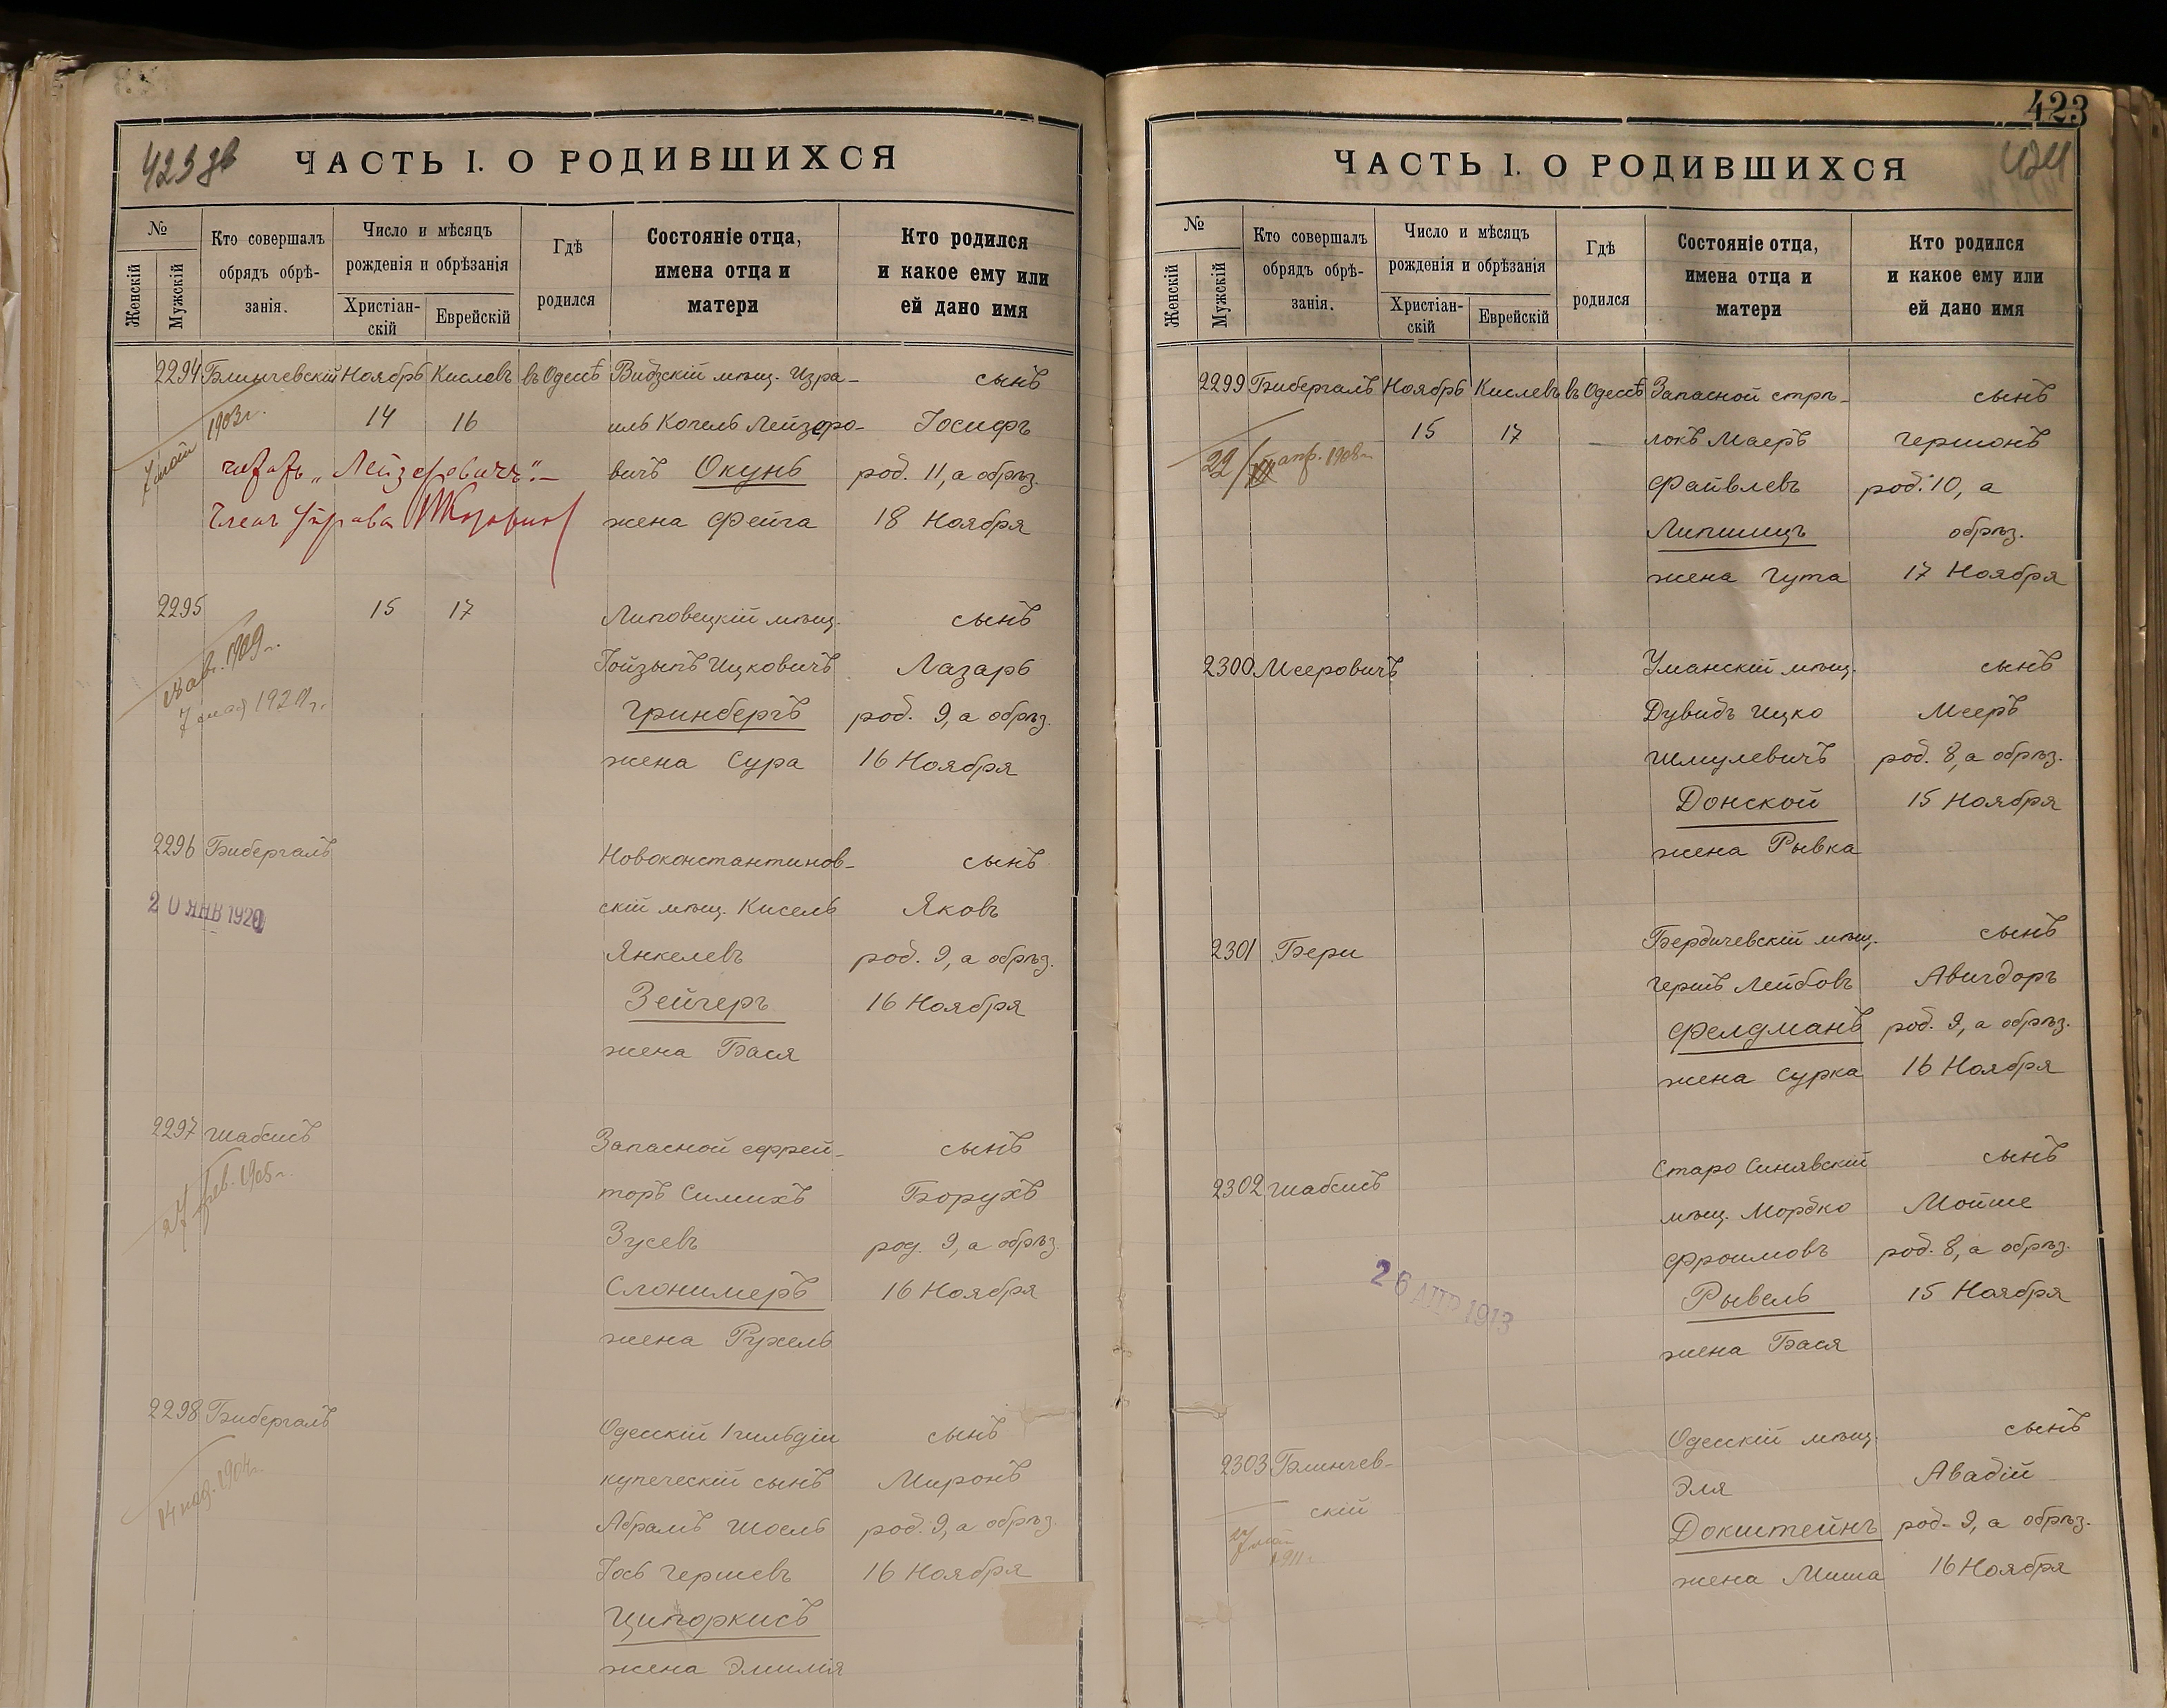 423 об
ЧАСТЬ I. О РОДИВШИХСЯ
№
Женскій
Мужскій
Кто совершалъ
обрядъ обрѣ-
занія.
Число и мѣсяцъ
рожденія и обрѣзанія
Христіан-
скій
Еврейскій
Гдѣ
родился
Состояніе отца,
имена отца и
матери
Кто родился
и какое ему или
ей дано имя
2294 Блинчевскій Ноябрь Кислевъ въ Одессѣ Видзскій мѣщ. Изра- сынъ
1903 г. 14 16 иль Копель Лейзоро- Іосифъ
читать „Лейзеровичъ".- вичъ Окунь род. 11, а обрѣз.
Членъ Управы жена Фейга 18 Ноября
2295 15 17 Липовецкій мѣщ. сынъ
1909 г. Іойзыпъ Ицковичъ Лазарь
7 мая Гринбергъ род. 9, а обрѣз.
жена Сура 16 Ноября
2296 Бибергалъ Новоконстантинов- сынъ
20 ЯНВ 1920 скій мѣщ. Кисель Яковъ
Янкелевъ род. 9, а обрѣз.
Зейгеръ 16 Ноября
жена Бася
2297 Шабсисъ Запасной ефрей- сынъ
27 фев. 1905 г. торъ Симихъ Борухъ
Зусевъ род. 9, а обрѣз.
Слонимеръ 16 Ноября
жена Рухель
2298 Бибергалъ Одесскій 1 гильдіи сынъ
14 1904 г. купеческій сынъ Миронъ
Абрамъ Шоель род. 9, а обрѣз.
Іось Гершевъ 16 Ноября
Ципоркисъ
жена Эмилія
423
424
ЧАСТЬ I. О РОДИВШИХСЯ
№
Женскій
Мужскій
Кто совершалъ
обрядъ обрѣ-
занія.
Число и мѣсяцъ
рожденія и обрѣзанія
Христіан-
скій
Еврейскій
Гдѣ
родился
Состояніе отца,
имена отца и
матери
Кто родился
и какое ему или
ей дано имя
2299 Бибергалъ Ноябрь Кислевъ въ Одессѣ Запасной стрѣ- сынъ
22/ апр. 1908 г. 15 17 локъ Маеръ Гершонъ
Файвлевъ род. 10, а
Липшицъ обрѣз.
жена Гута 17 Ноября
2300 Мееровичъ Уманскій мѣщ. сынъ
Дувидъ Ицко Мееръ
Шмулевичъ род. 8, а обрѣз.
Донской 15 Ноября
жена Рывка
2301 Бери Бердичевскій мѣщ. сынъ
Гершъ Лейбовъ Авигдоръ
Фелдманъ род. 9, а обрѣз.
жена Сурка 16 Ноября
2302 Шабсисъ Старо Синявскій сынъ
мѣщ. Мордко Мойше
26 АПР 1913 Фроимовъ род. 8, а обрѣз.
Рывель 15 Ноября
жена Бася
2303 Блинчев- Одесскій мѣщ. сынъ
скій Эля Авадій
1911 г. Докштейнъ род. 9, а обрѣз.
жена Миша 16 Ноября